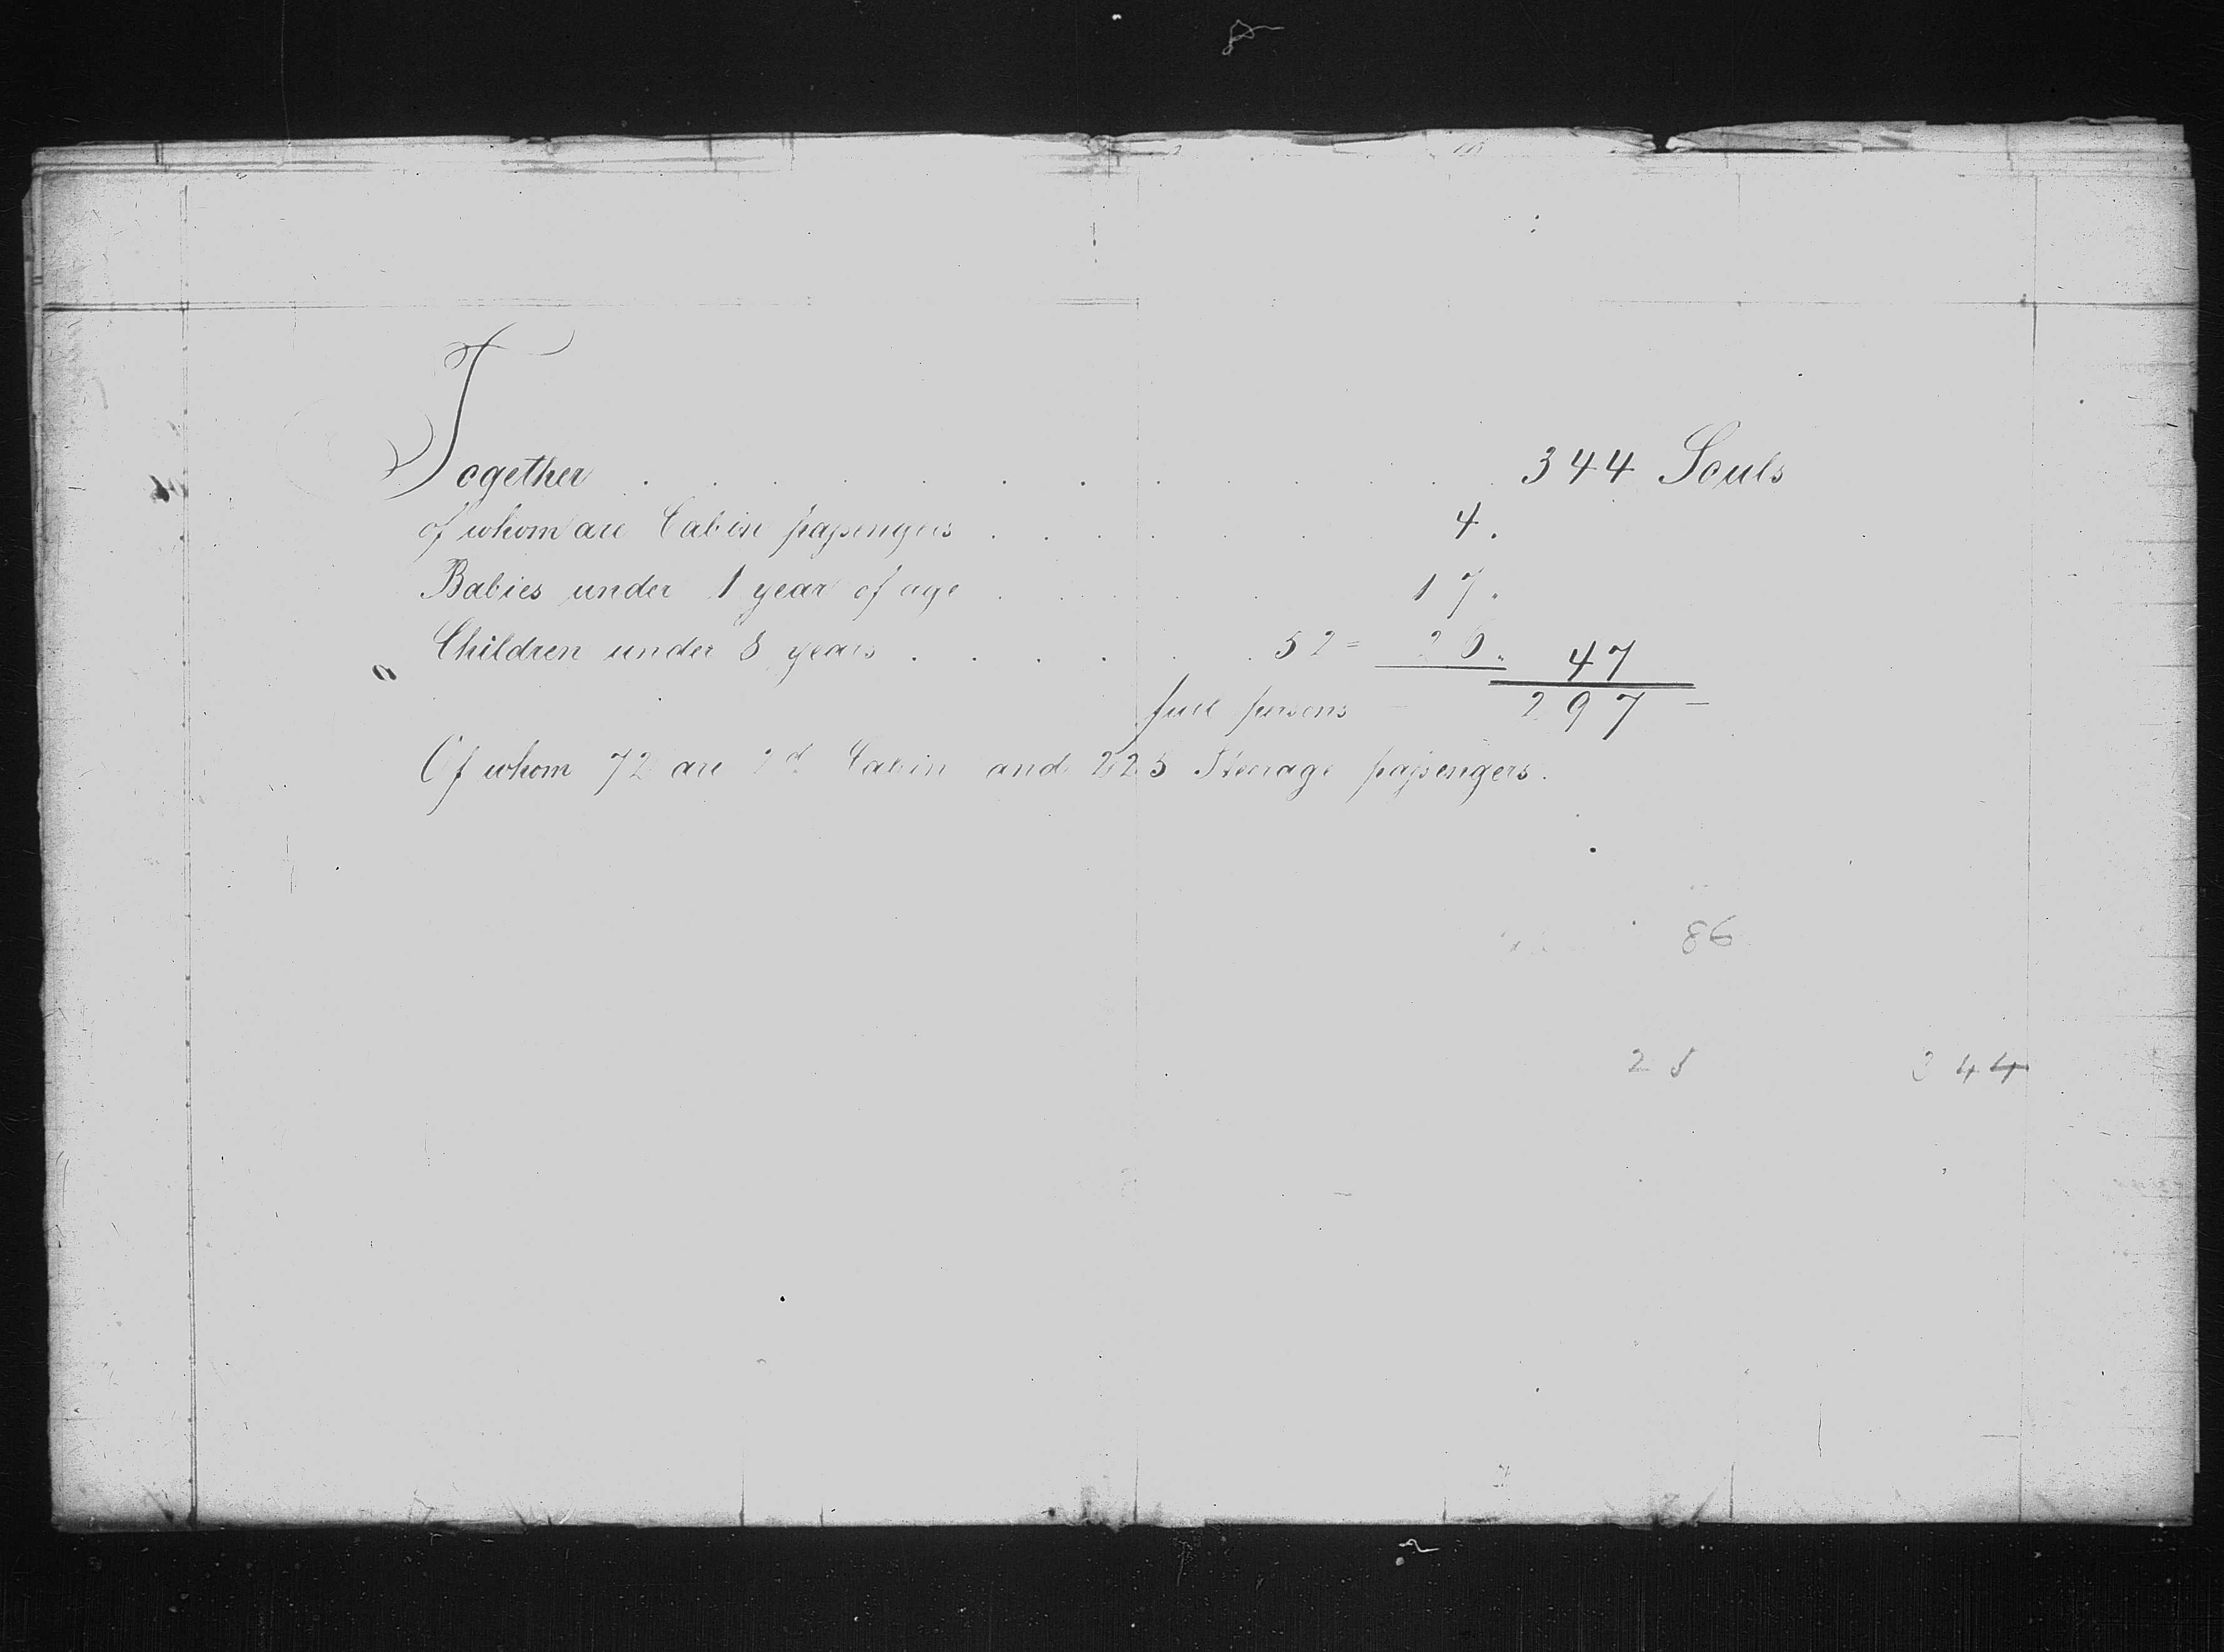 Together . . . . . . . . . . . . 344 Souls
of whom are Cabin passengers . . . . . . 4.
Babies under 1 year of age . . . . . 17.
Children under 8 years . . . . . . 52 = 26. 47
full persons 297 —
Of whom 72 are 2d Cabin and 225 Steerage passengers.
86
344